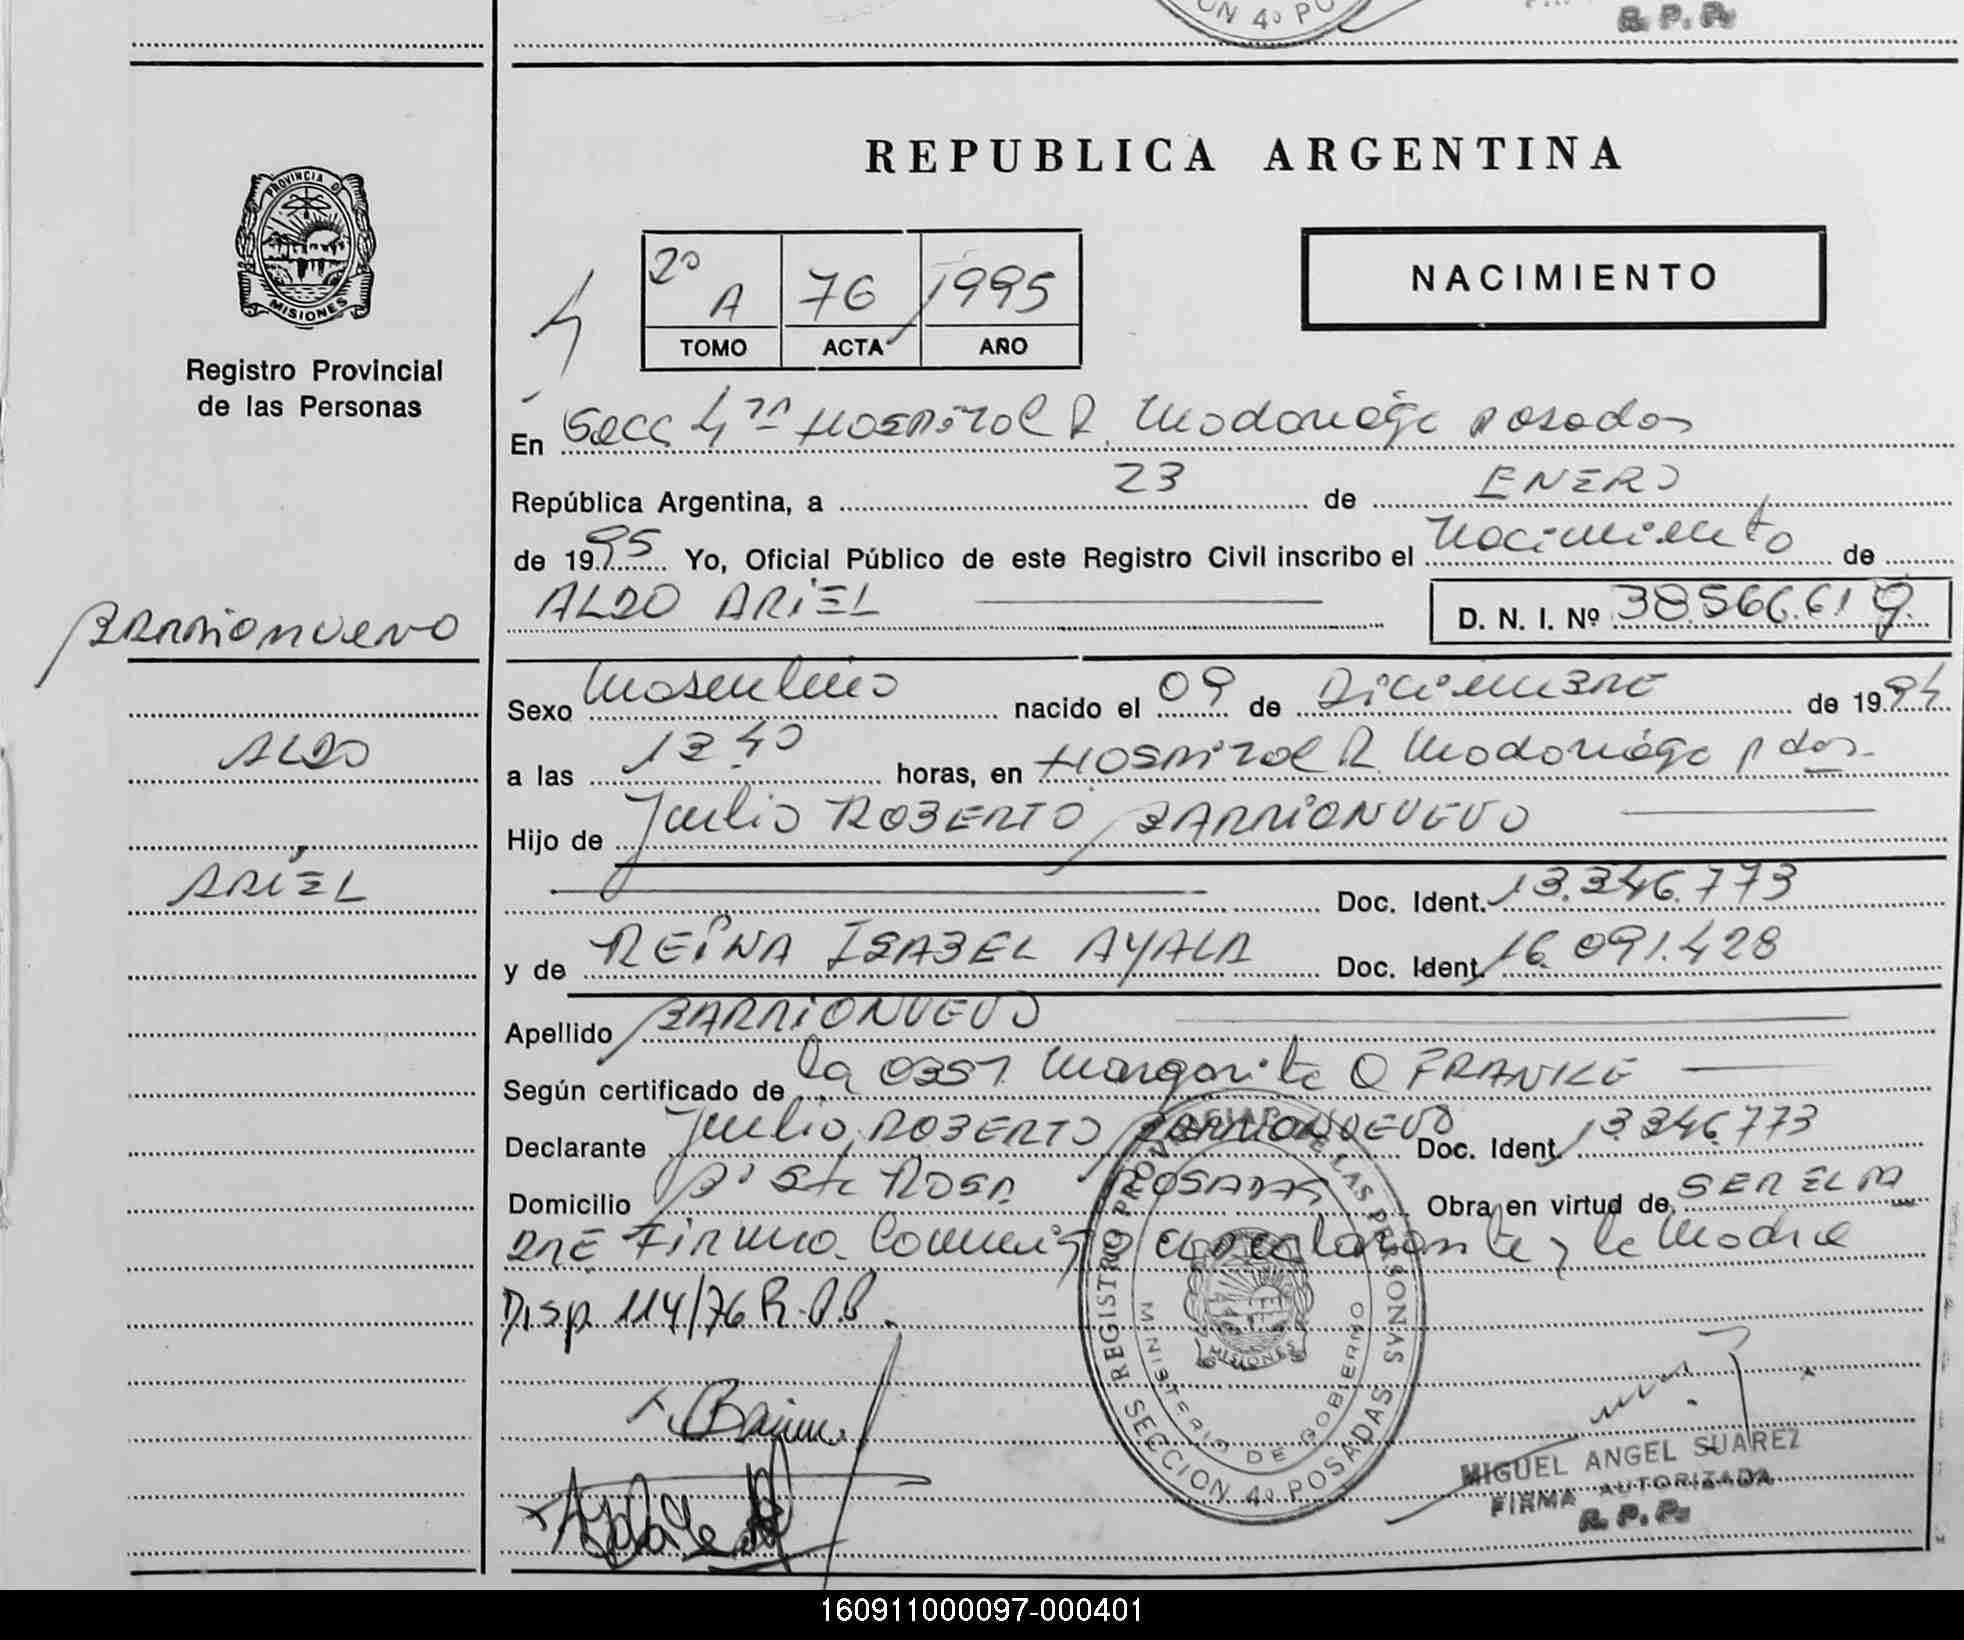 ON 4º PO
R. P. P.
REPUBLICA ARGENTINA
PROVINCIA D
MISIONES
Registro Provincial
de las Personas
4
2º A 76 1995
TOMO ACTA AÑO
NACIMIENTO
En Secc 4ta Hospital R. Madariaga Posadas
República Argentina, a 23 de ENERO
de 1995 Yo, Oficial Público de este Registro Civil inscribo el Nacimiento de
ALDO ARIEL D. N. I. Nº 38.566.619.
BARRIONUEVO
Sexo Masculino nacido el 09 de DICIEMBRE de 1994
ALDO
a las 13.40 horas, en Hospital R. Madariaga Pdas.
Hijo de Julio ROBERTO BARRIONUEVO
ARIEL
Doc. Ident. 13.346.773
y de REINA ISABEL AYALA Doc. Ident. 16.091.428
Apellido BARRIONUEVO
Según certificado de la OBST. Margarita O FRANKE
Declarante Julio ROBERTO BARRIONUEVO Doc. Ident. 13.346.773
Domicilio Bº Sta ROSA POSADAS Obra en virtud de SER EL PA
DRE Firma Conmigo el declarante y la Madre
Disp. 114/76 R.P.P.
REGISTRO PROVINCIAL DE LAS PERSONAS
MINISTERIO DE GOBIERNO
MISIONES
SECCION 4º POSADAS
MIGUEL ANGEL SUAREZ
FIRMA AUTORIZADA
R. P. P.
160911000097-000401